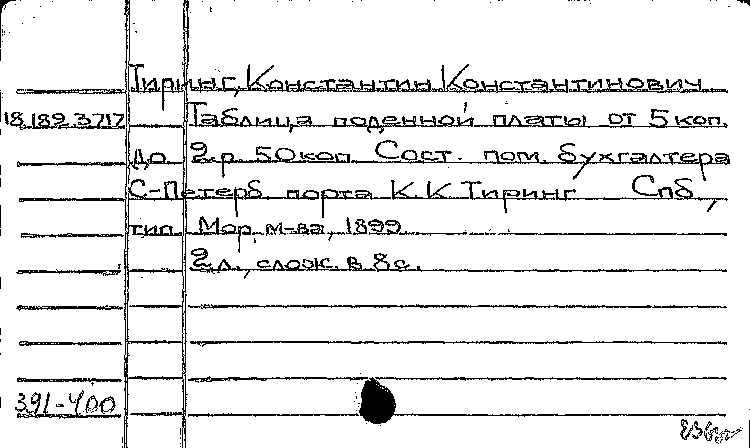 Тиринг, Константин Константинович
18.189.3.717 Таблица поденной платы от 5 коп.
до 2 р. 50 коп. Сост. пом. бухгалтера
С-Петерб. порта К.К. Тиринг. Спб.,
тип. Мор. м-ва, 1899.
2 л., слож. в 8 с.
391-400